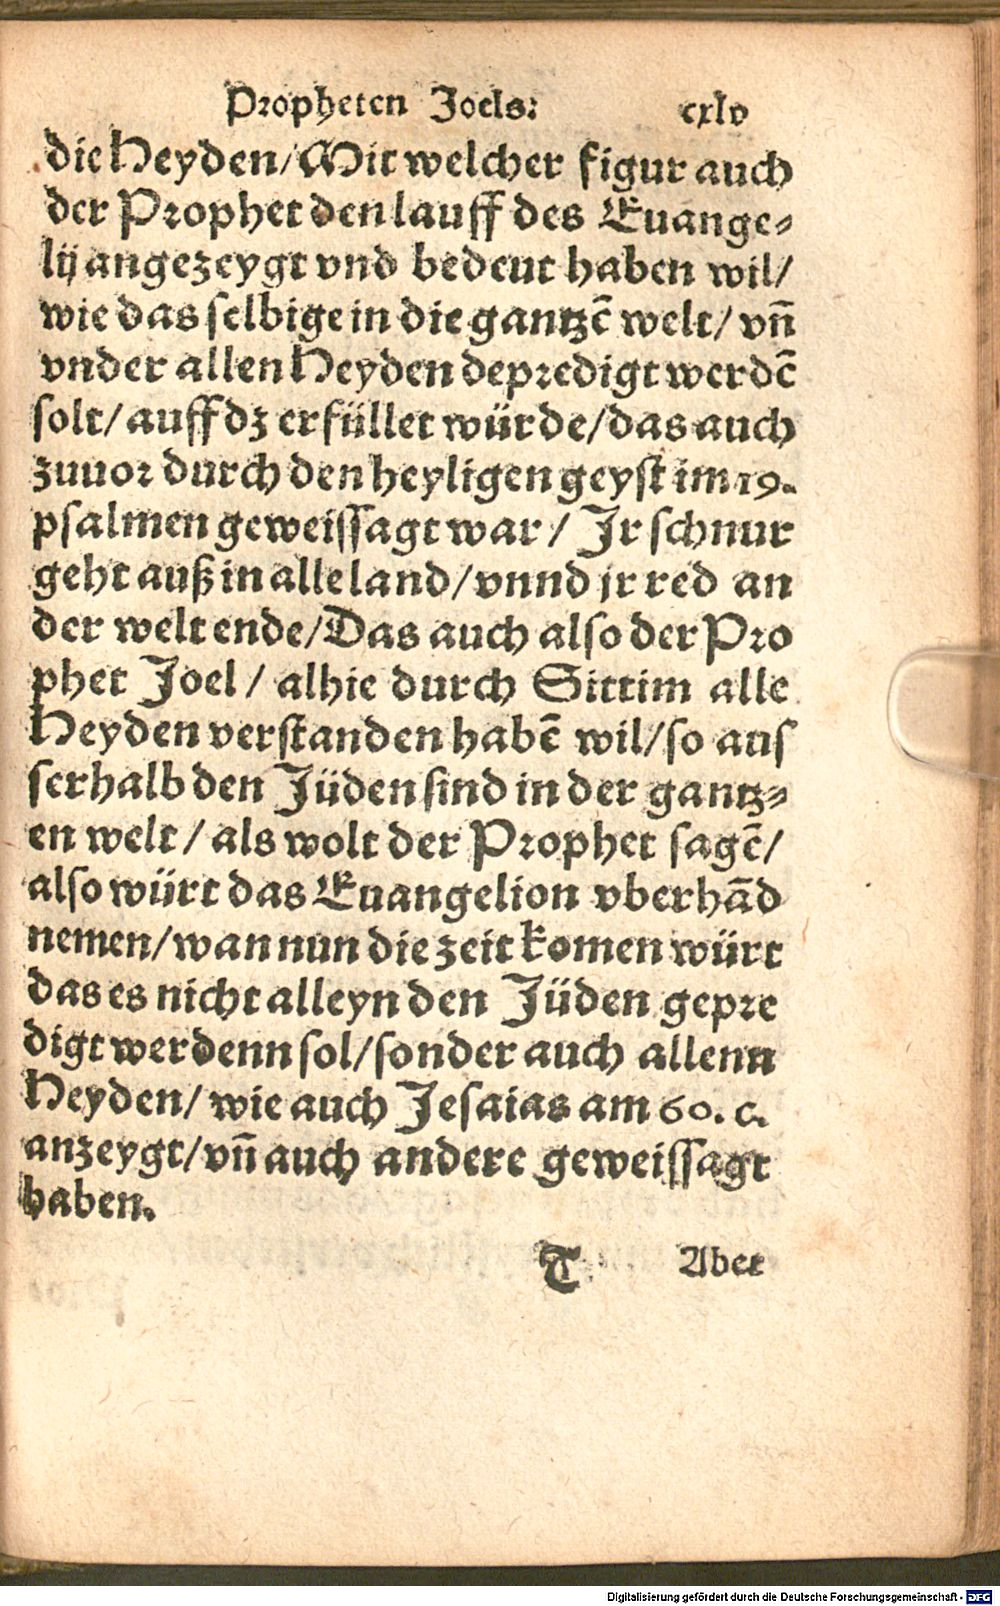 Propheten Joels: cxlv
die Heyden/Mit welcher figur auch
der Prophet den lauff des Euange⸗
lij angezeygt vnd bedeut haben wil/
wie das selbige in die gantzē welt/ vn̄
vnder allen Heyden depredigt werdē
solt/ auff dz erfüllet würde/das auch
zuuor durch den heyligen geyst im 19.
psalmen geweissagt war/ Jr schnur
geht auß in alle land/vnnd jr red an
der welt ende/Das auch also der Pro
phet Joel/ alhie durch Sittim alle
Heyden verstanden habē wil/so aus
serhalb den Jüden sind in der gantz⸗
en welt/ als wolt der Prophet sagē/
also würt das Euangelion vberhād
nemen/wan nun die zeit komen würt
das es nicht alleyn den Jüden gepre
digt werdenn sol/sonder auch allenn
Heyden/ wie auch Jesaias am 60. c.
anzeygt/vn̄ auch andere geweissagt
haben.
T Aber
Digitalisierung gefördert durch die Deutsche Forschungsgemeinschaft - DFG